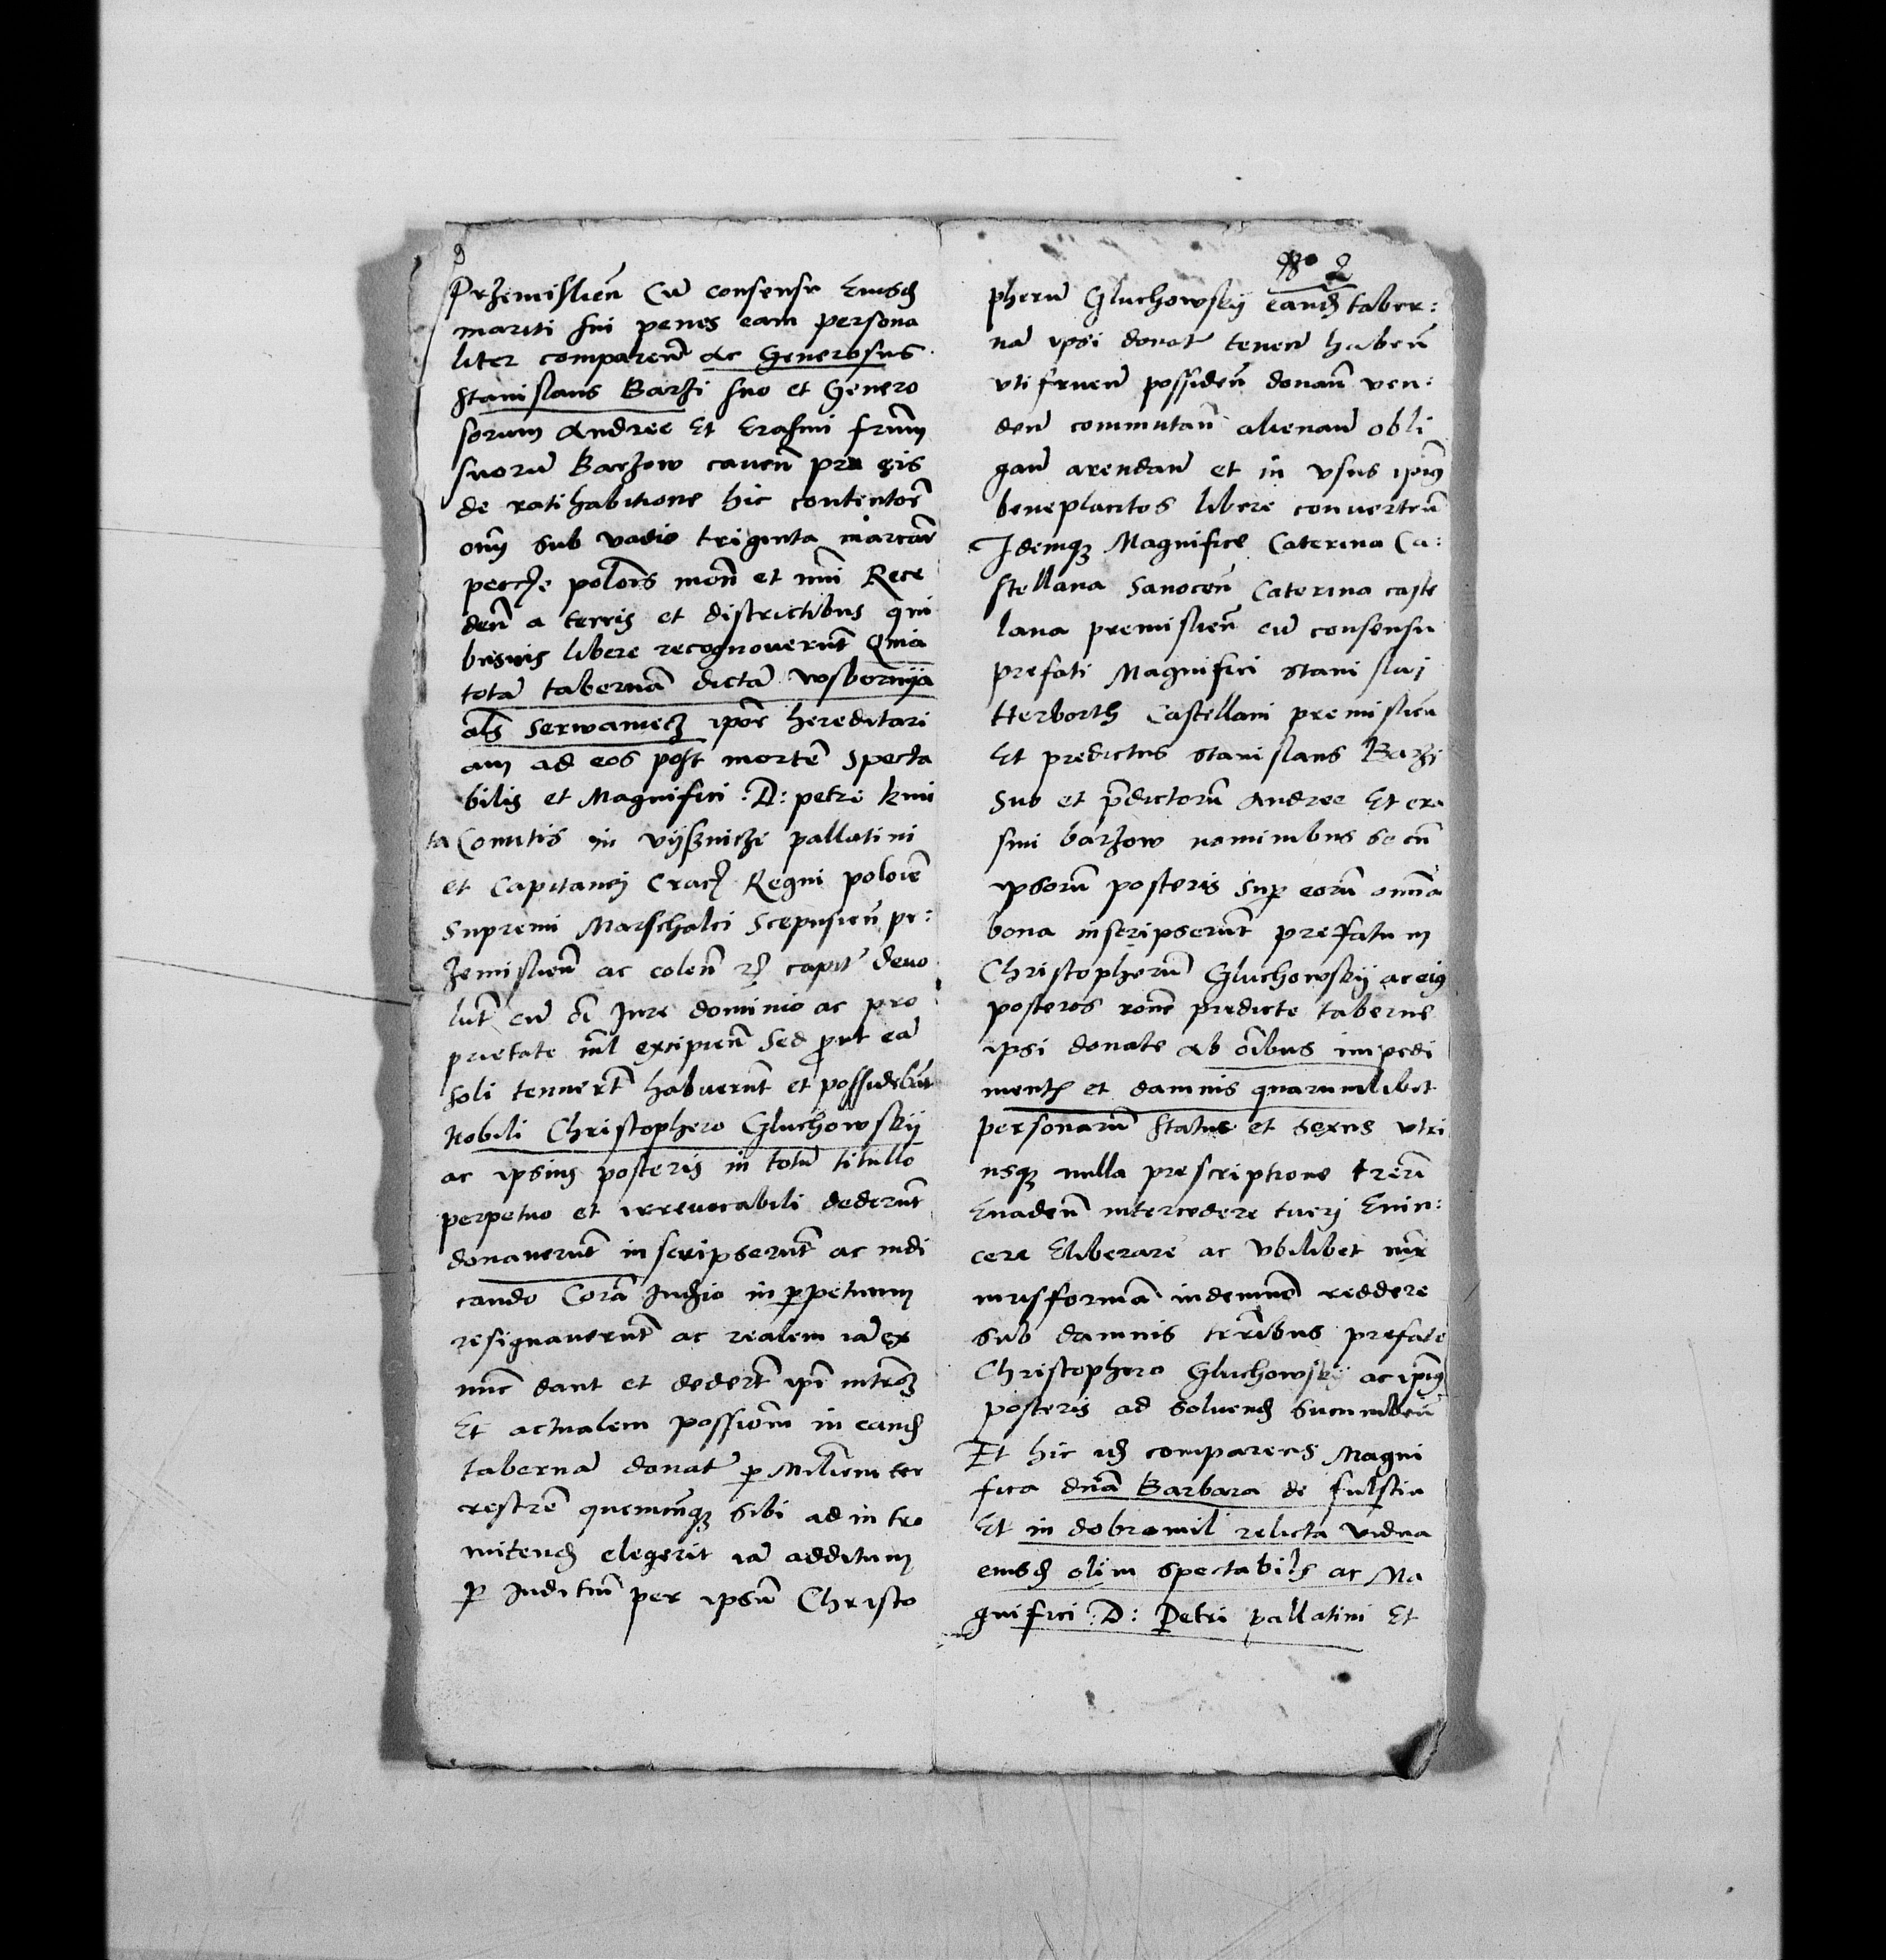 Przemislien̄ Cū consensu Eiusd
mariti sui penes eam persona
liter comparen̄ ac Generosus
stanislaus Barzi suo et Genero
sorum Andree Et Erasmi frūm
suorū Barzow caven̄ pro eis
de ratihabitione hic contentor̄
om̄ sub vadio triginta marcar̄
pecc̄e polon̄s mon̄ et nūi Rece
den̄ a terris et districtibus qui
busvis libere recognoverūt Quia
totā tabernā dictā wosbornya
al̄s Serwaniecz ipōr̄ hereditari
am ad eos post mortē Specta
bilis et Magnifici :D: petri kmi
ta Comitis in vÿsniczi pallatini
et Capitanej Crac̄ Regni polonie
Supremi Marschalci Scepusien̄ pr:
zemislien̄ ac colen̄ capit̄ devo
lut̄ cū oī Jure dominio ac pro
prietate nīl excipien̄ Sed put eā
soli tenuert̄ habuerunt et possidebāt
Nobili Christophero Gluchowsky
ac ipsius posteris in totū titullo
perpetuo et irrevocabili dederūt
donaverūt inscripserūt ac iudi
cando Corā Judicio in ppetuum
resignaverūt ac realem iā ex
nūc dant et dedert̄ ipī intro
Et actualem possiōm in eand
tabernā donat̄ p Ministerialem ter
restrē quemcūqz sibi ad intro
mitend elegerit iā additum
p Juditiū per ipsū Christo
No 2
pherū Gluchowskÿ eand taber:
nā ipsi donat̄ tenen̄ haben̄
utifruen̄ possiden̄ donan̄ ven:
den̄ commutan̄ alienan̄ obli
gan̄ arendan̄ et in usus ipius
beneplacitos libere converten̄
Idemqz Magnifice Caterina Ca:
stellana Sanocen̄ Caterina caste
lana premislien̄ cū consensu
prefati Magnifici stani slaj
Herborth Castellani premislien̄
Et predictus stanislaus Barzi
Suo et p̄dictorū Andree Et era
smi barzow nominibus se cū
ipsorū posteris Sup eorū omnia
bona inscripserūt prefatum
Christopherū Gluchowskÿ ac eius
posteros rone predicte taberne
ipsi donate ab oībus impedi
ment et damnis quarumlibet
personarū status et sexus utri
usqz nulla prescriptione trēri
Evaden̄ intercedere tuerj Evin:
cere Eliberare ac ubilibet iux
iurisformā indemnē reddere
Sub damnis trēribus prefato
Christophero Gluchowskÿ ac ipius
posteris ad Solvend Sucumben̄
Et hic id comparens Magni
fica dnā Barbara de fulstin
Et in dobromil relicta vidua
eiusd olim spectabils ac Ma
gnifici :D: Petri pallatini Et